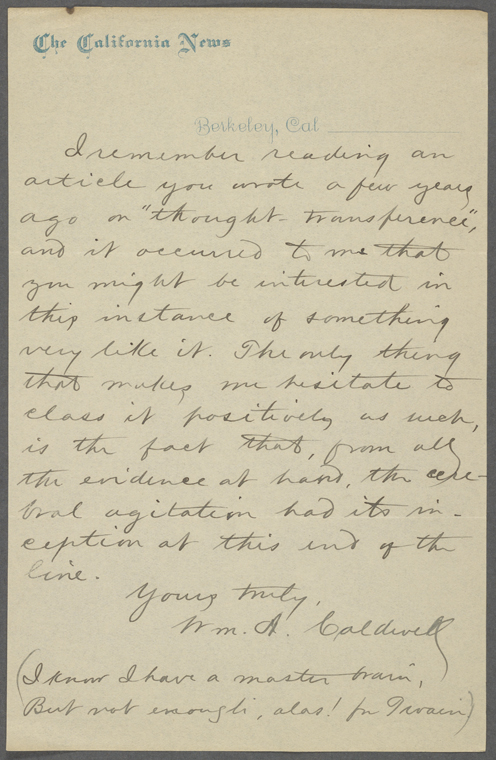 The California News
Berkeley, Cal
I remember reading an
article you wrote a few years
ago on "thought-transference",
and it occurred to me that
you might be interested in
this instance of something
very like it. The only thing
that makes me hesitate to
class it positively as such,
is the fact that, from all
the evidence at hand, the cere-
bral agitation had its in-
ception at this end of the
line.
Yours truly,
Wm. A. Caldwell
(I know I have a master brain,
But not enough, alas! for Twain)